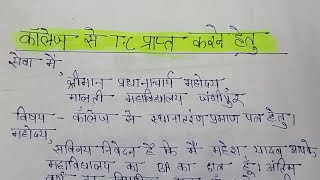 कॉलेज से T.C प्राप्त करने हेतु
सेवा में,
श्रीमान प्रधानाचार्य महोदय
मालती महाविद्यालय,
विषय - कॉलेज से स्थानान्तरण प्रमाण पत्र हेतु।
महोदय,
सविनय निवेदन है कि मैं महेश यादव आपके
महाविद्यालय का BA का छात्र हूँ। अंतिम